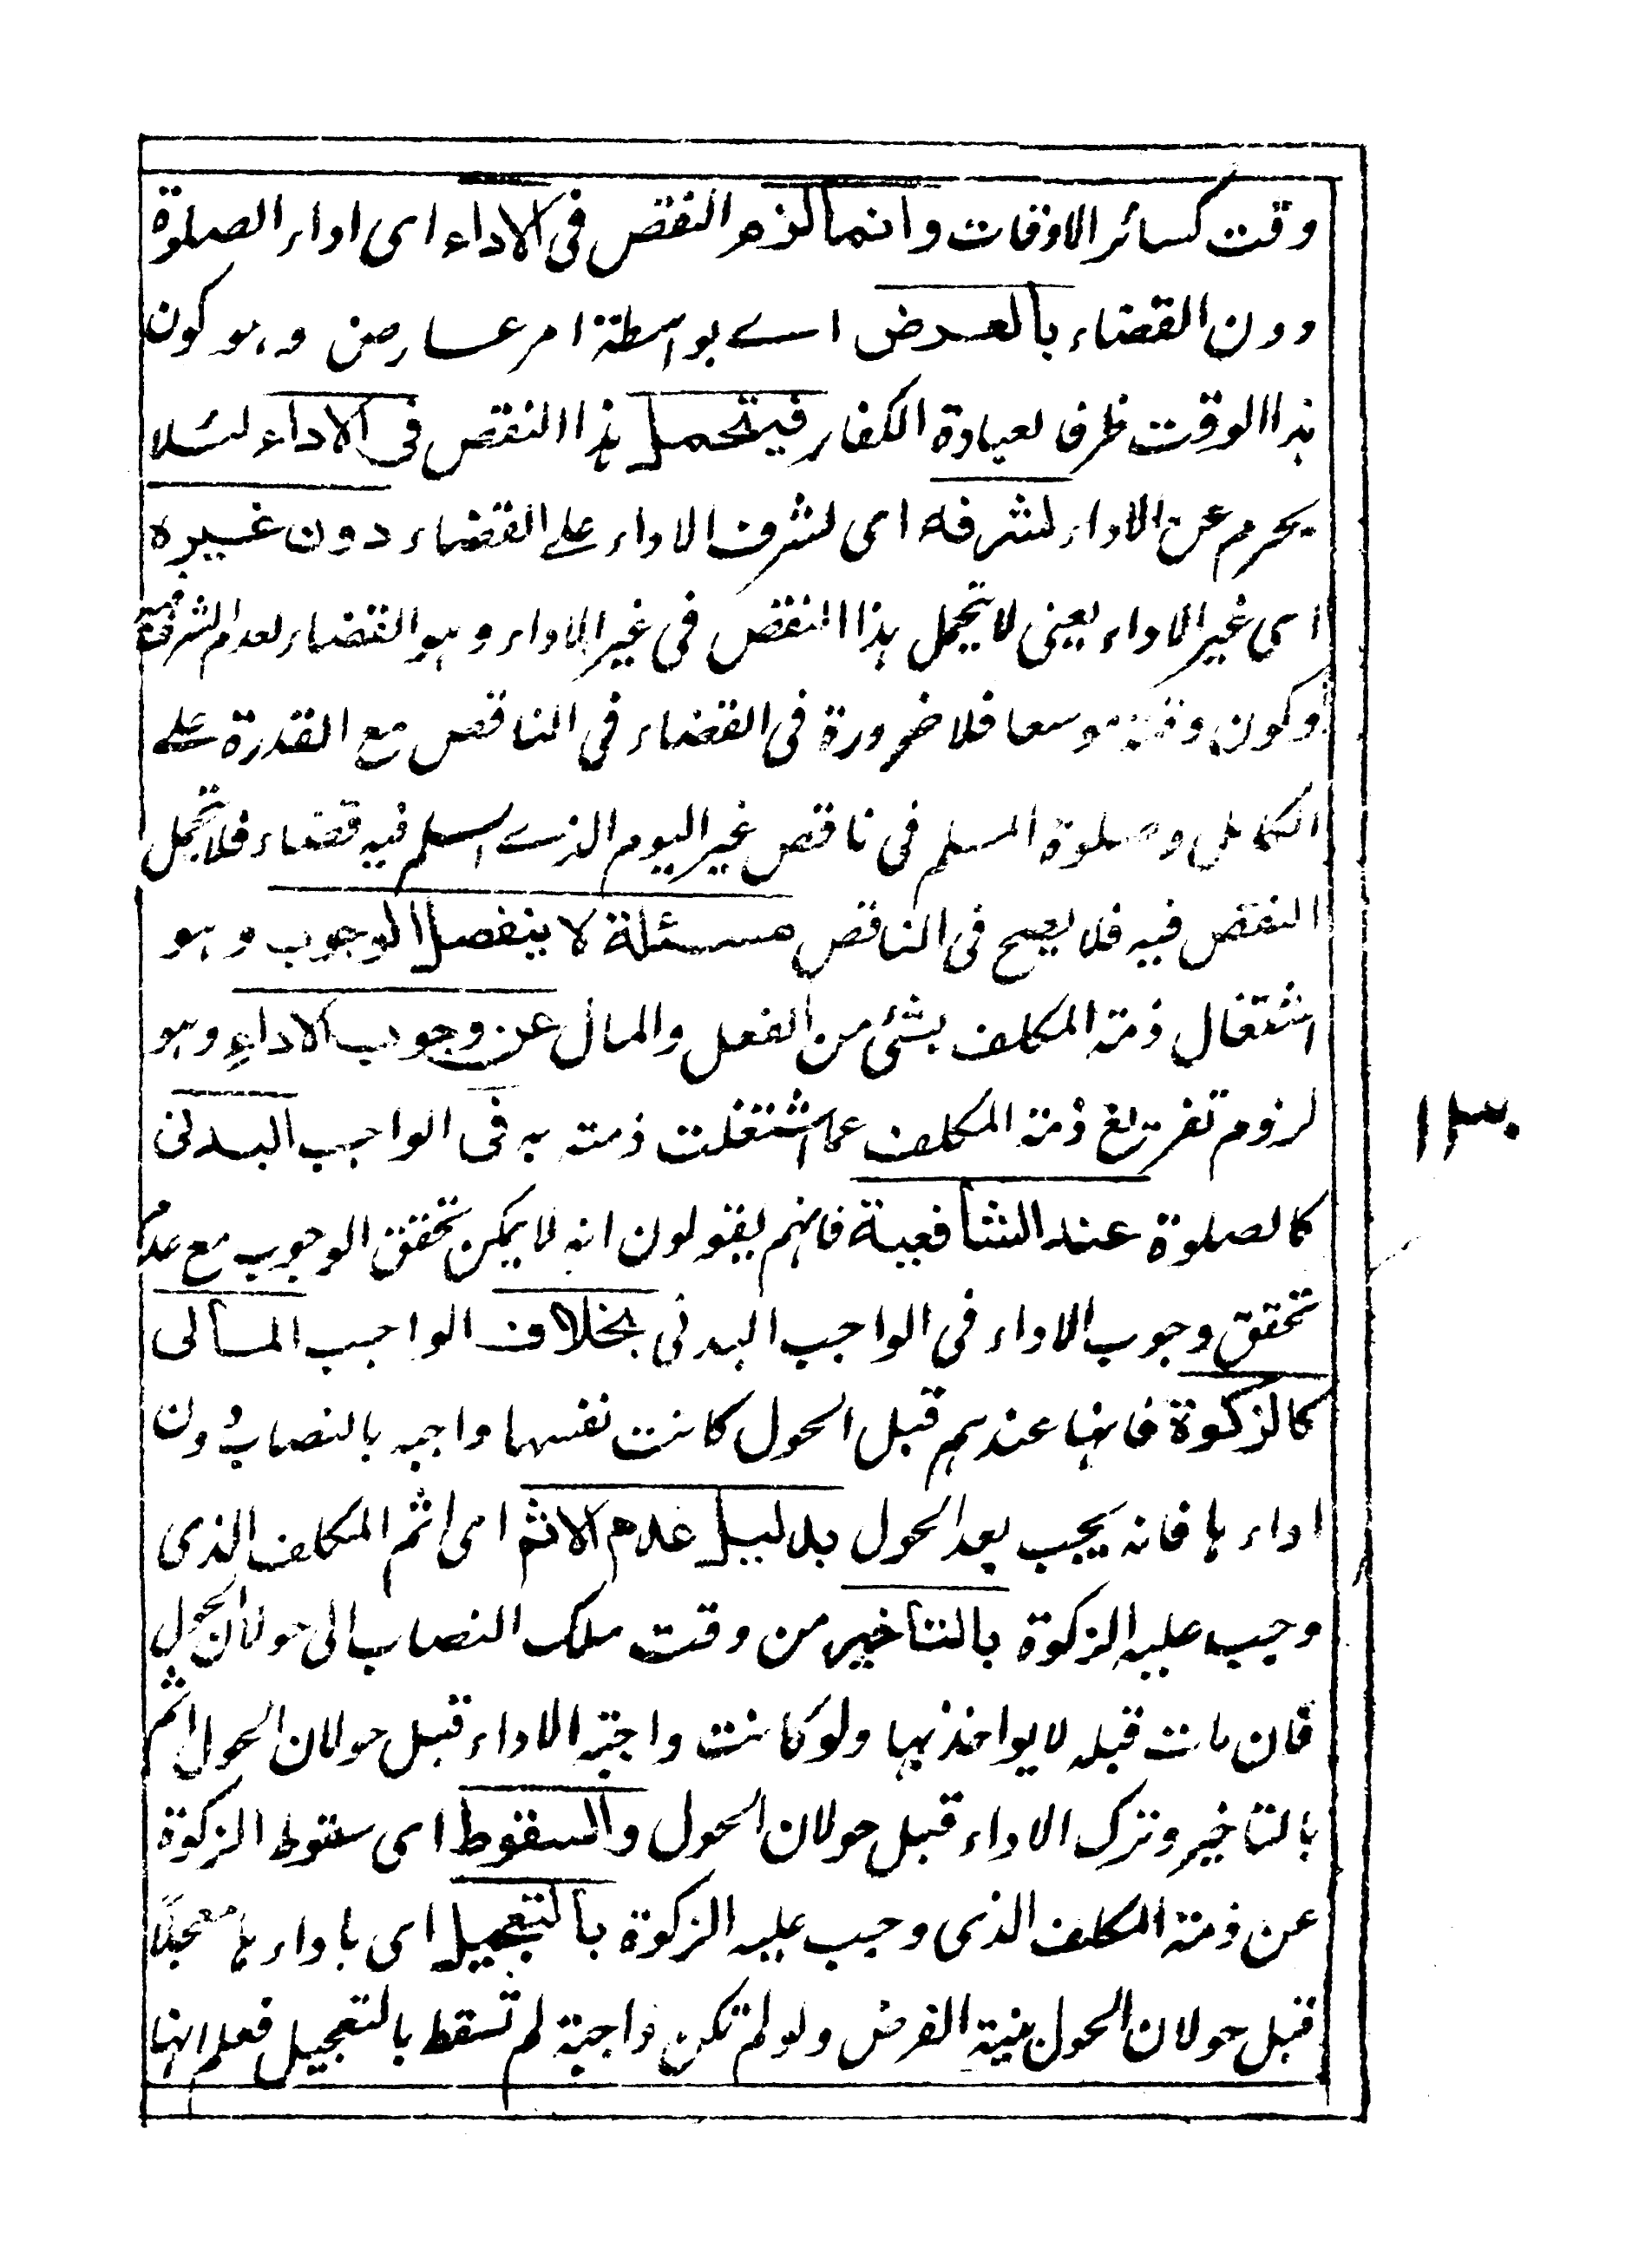 وقت كسائر الاوقات وانما لزم النقص فى الاداء اى اداء الصلوة
دون القضاء بالعرض اے بواسطة امر عارض وهو كون
هذا الوقت ظرفا لعبادة الكفار فيتحمل هذا النقص فى الاداء لئلا
يحرم عن الاداء لشرفه اى لشرف الاداء على القضاء دون غيره
اى غير الاداء يعنى لا يتحمل هذا النقص فى غير الاداء وهو القضاء لعدم الشرف فيه
وكون وقته موسعا فلا ضرورة فى القضاء فى الناقص مع القدرة على
الكامل وصلوة المسلم فى ناقص غير اليوم الذے اسلم فيه قضاء فلا يتحمل
النقص فيه فلا يصح فى الناقص مسئلة لا ينفصل الوجوب وهو
اشتغال ذمة المكلف بشئ من الفعل والمال عن وجوب الاداء وهو
لزوم تفريغ ذمة المكلف عما اشتغلت ذمته به فى الواجب البدنى
كالصلوة عند الشافعية فانهم يقولون انه لا يمكن تحقق الوجوب مع عدم
تحقق وجوب الاداء فى الواجب البدنى بخلاف الواجب المالى
كالزكوة فانها عندهم قبل الحول كانت نفسها واجبه بالنصاب دون
اداءها فانه يجب بعد الحول بدليل عدم الاثم اى اثم المكلف الذى
وجب عليه الزكوة بالتاخير من وقت ملك النصاب الى حولان الحول
فان مات قبله لا يواخذ بها ولو كانت واجبة الاداء قبل حولان الحول اثم
بالتاخير وترك الاداء قبل حولان الحول والسقوط اى سقوط الزكوة
عن ذمة المكلف الذى وجب عليه الزكوة بالتعجيل اى باداءها معجلاً
قبل حولان الحول بنية الفرض ولو لم تكن واجبة لم تسقط بالتعجيل فعلم انها
١٣٠